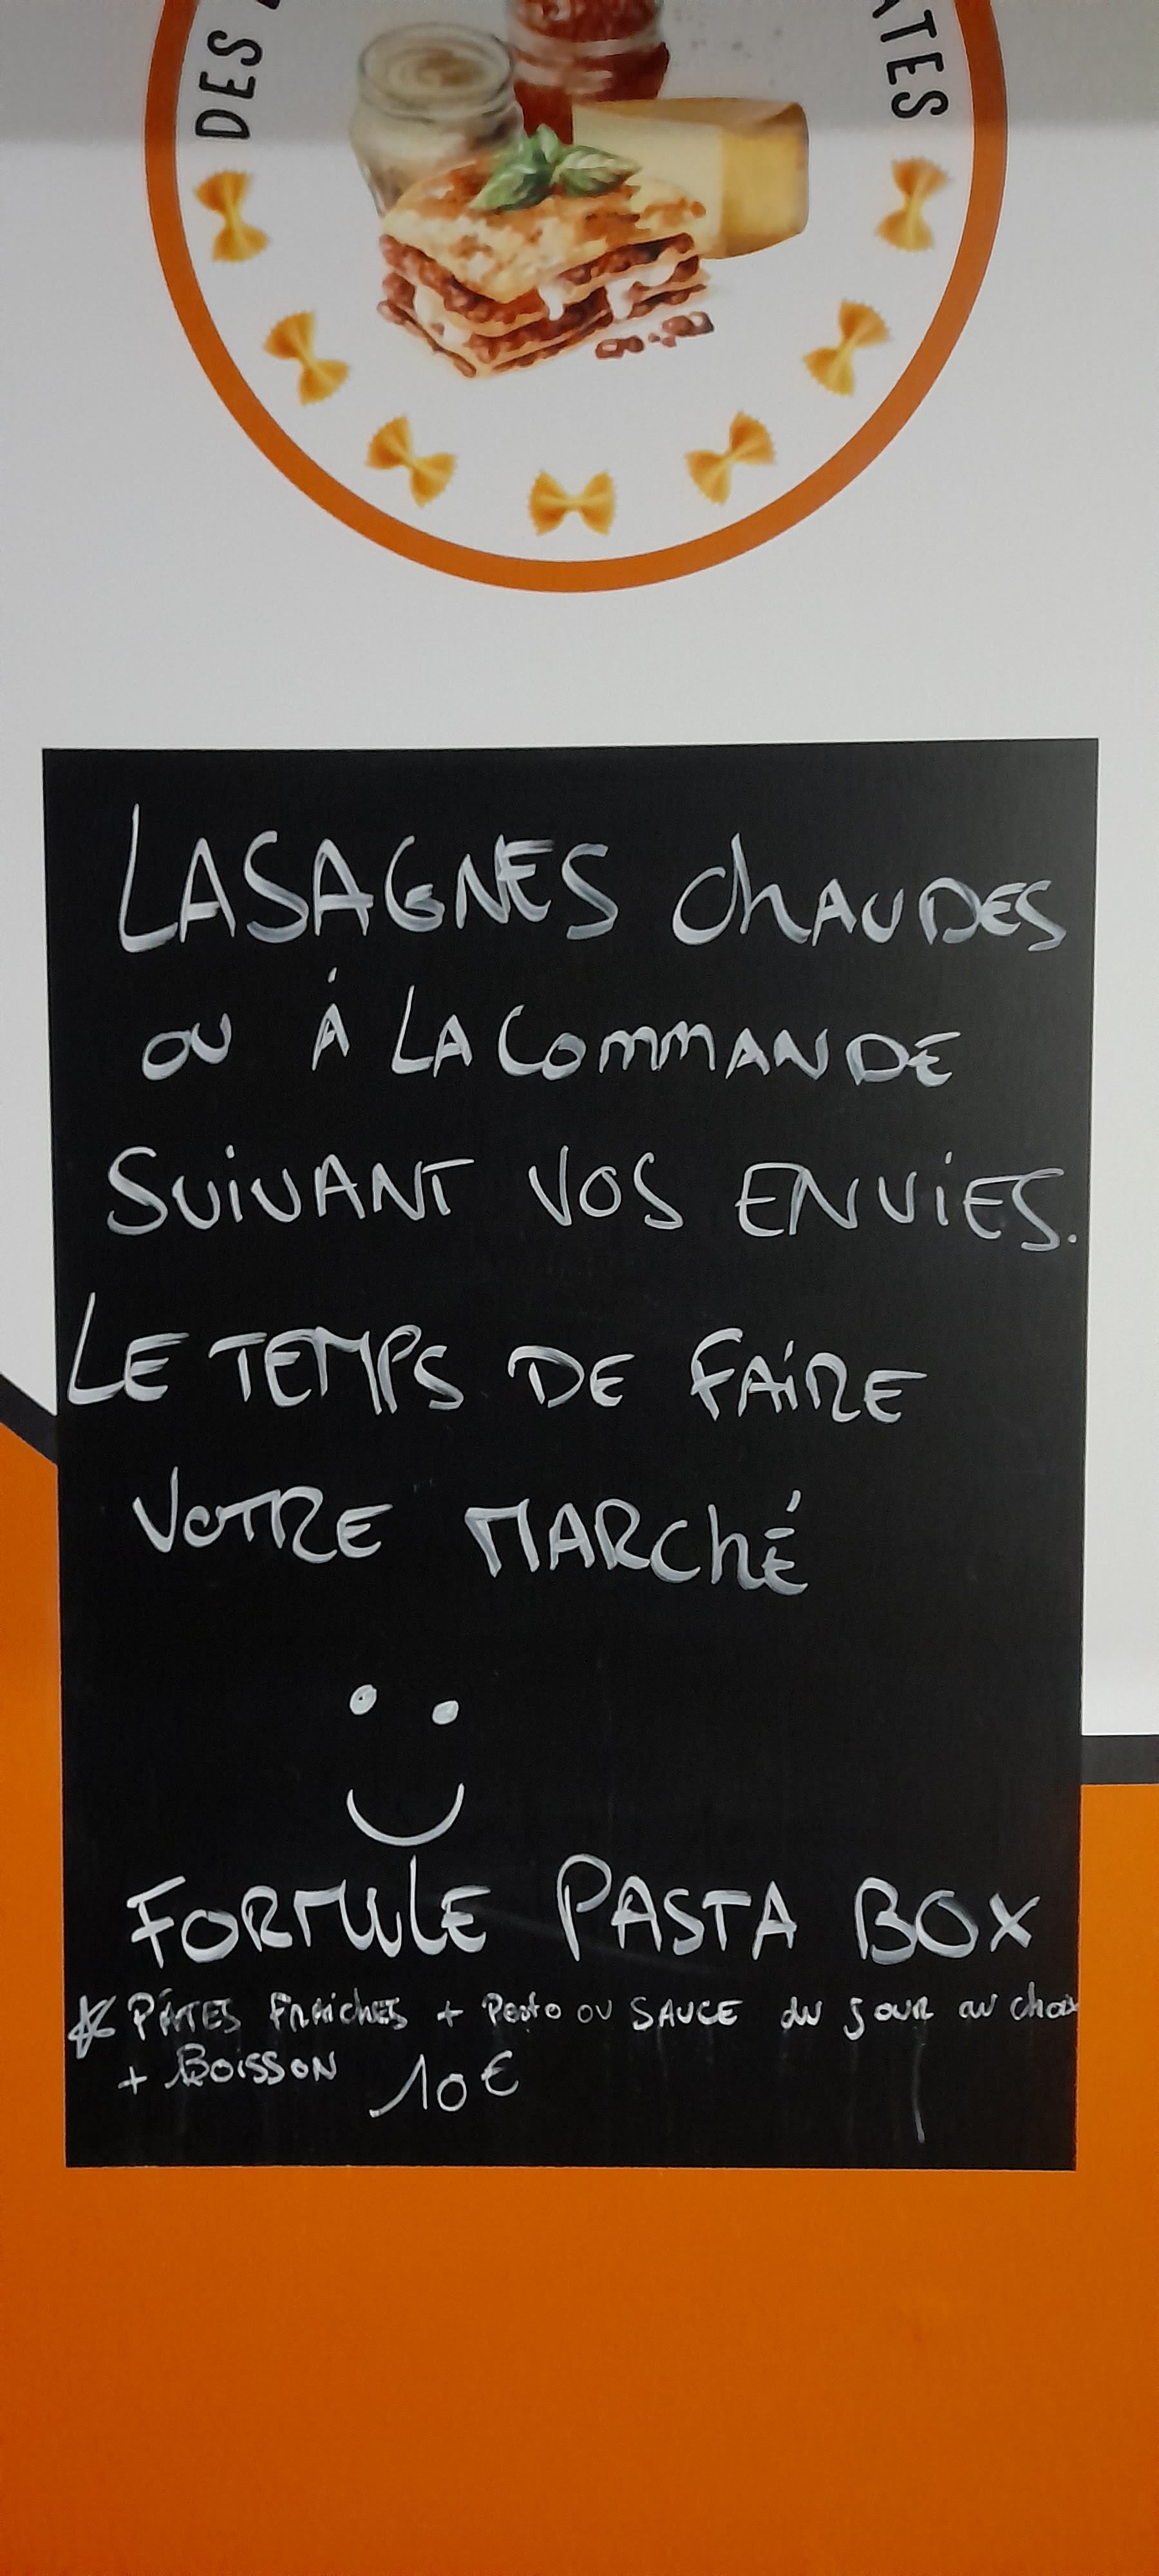 DES
ATES
LASAGNES ChAUDES
OU À LA COMMANDE
SUIVANT VOS ENVIES.
LE TEMPS DE FAIRE
VOTRE MARChÉ
FORMULE PASTA BOX
* PÂTES FRAICHES + Pesto ou SAUCE du jour au choix
+ BOISSON 10€